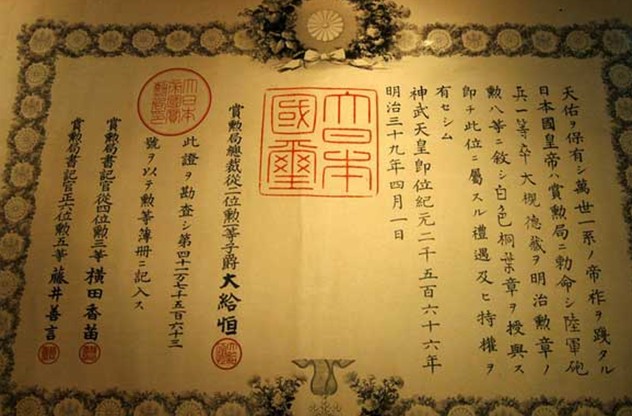 天佑ヲ保有シ萬世一系ノ帝祚ヲ踐タル
日本國皇帝ハ賞勲局ニ勅命シ陸軍砲
兵一等卒大槻德藏ヲ明治勲章ノ
勲八等ニ敍シ白色桐葉章ヲ授與ス
即チ此位ニ屬スル禮遇及ヒ特權ヲ
有セシム
神武天皇即位紀元二千五百六十六年
明治三十九年四月一日
大日本國璽
賞勲局總裁從二位勲一等子爵大給恒
此證ヲ勘査シ第四十一万七千五百六十三
號ヲ以テ勲等簿冊ニ記入ス
賞勲局書記官從四位勲三等横田香苗
賞勲局書記官正六位勲五等藤井善言